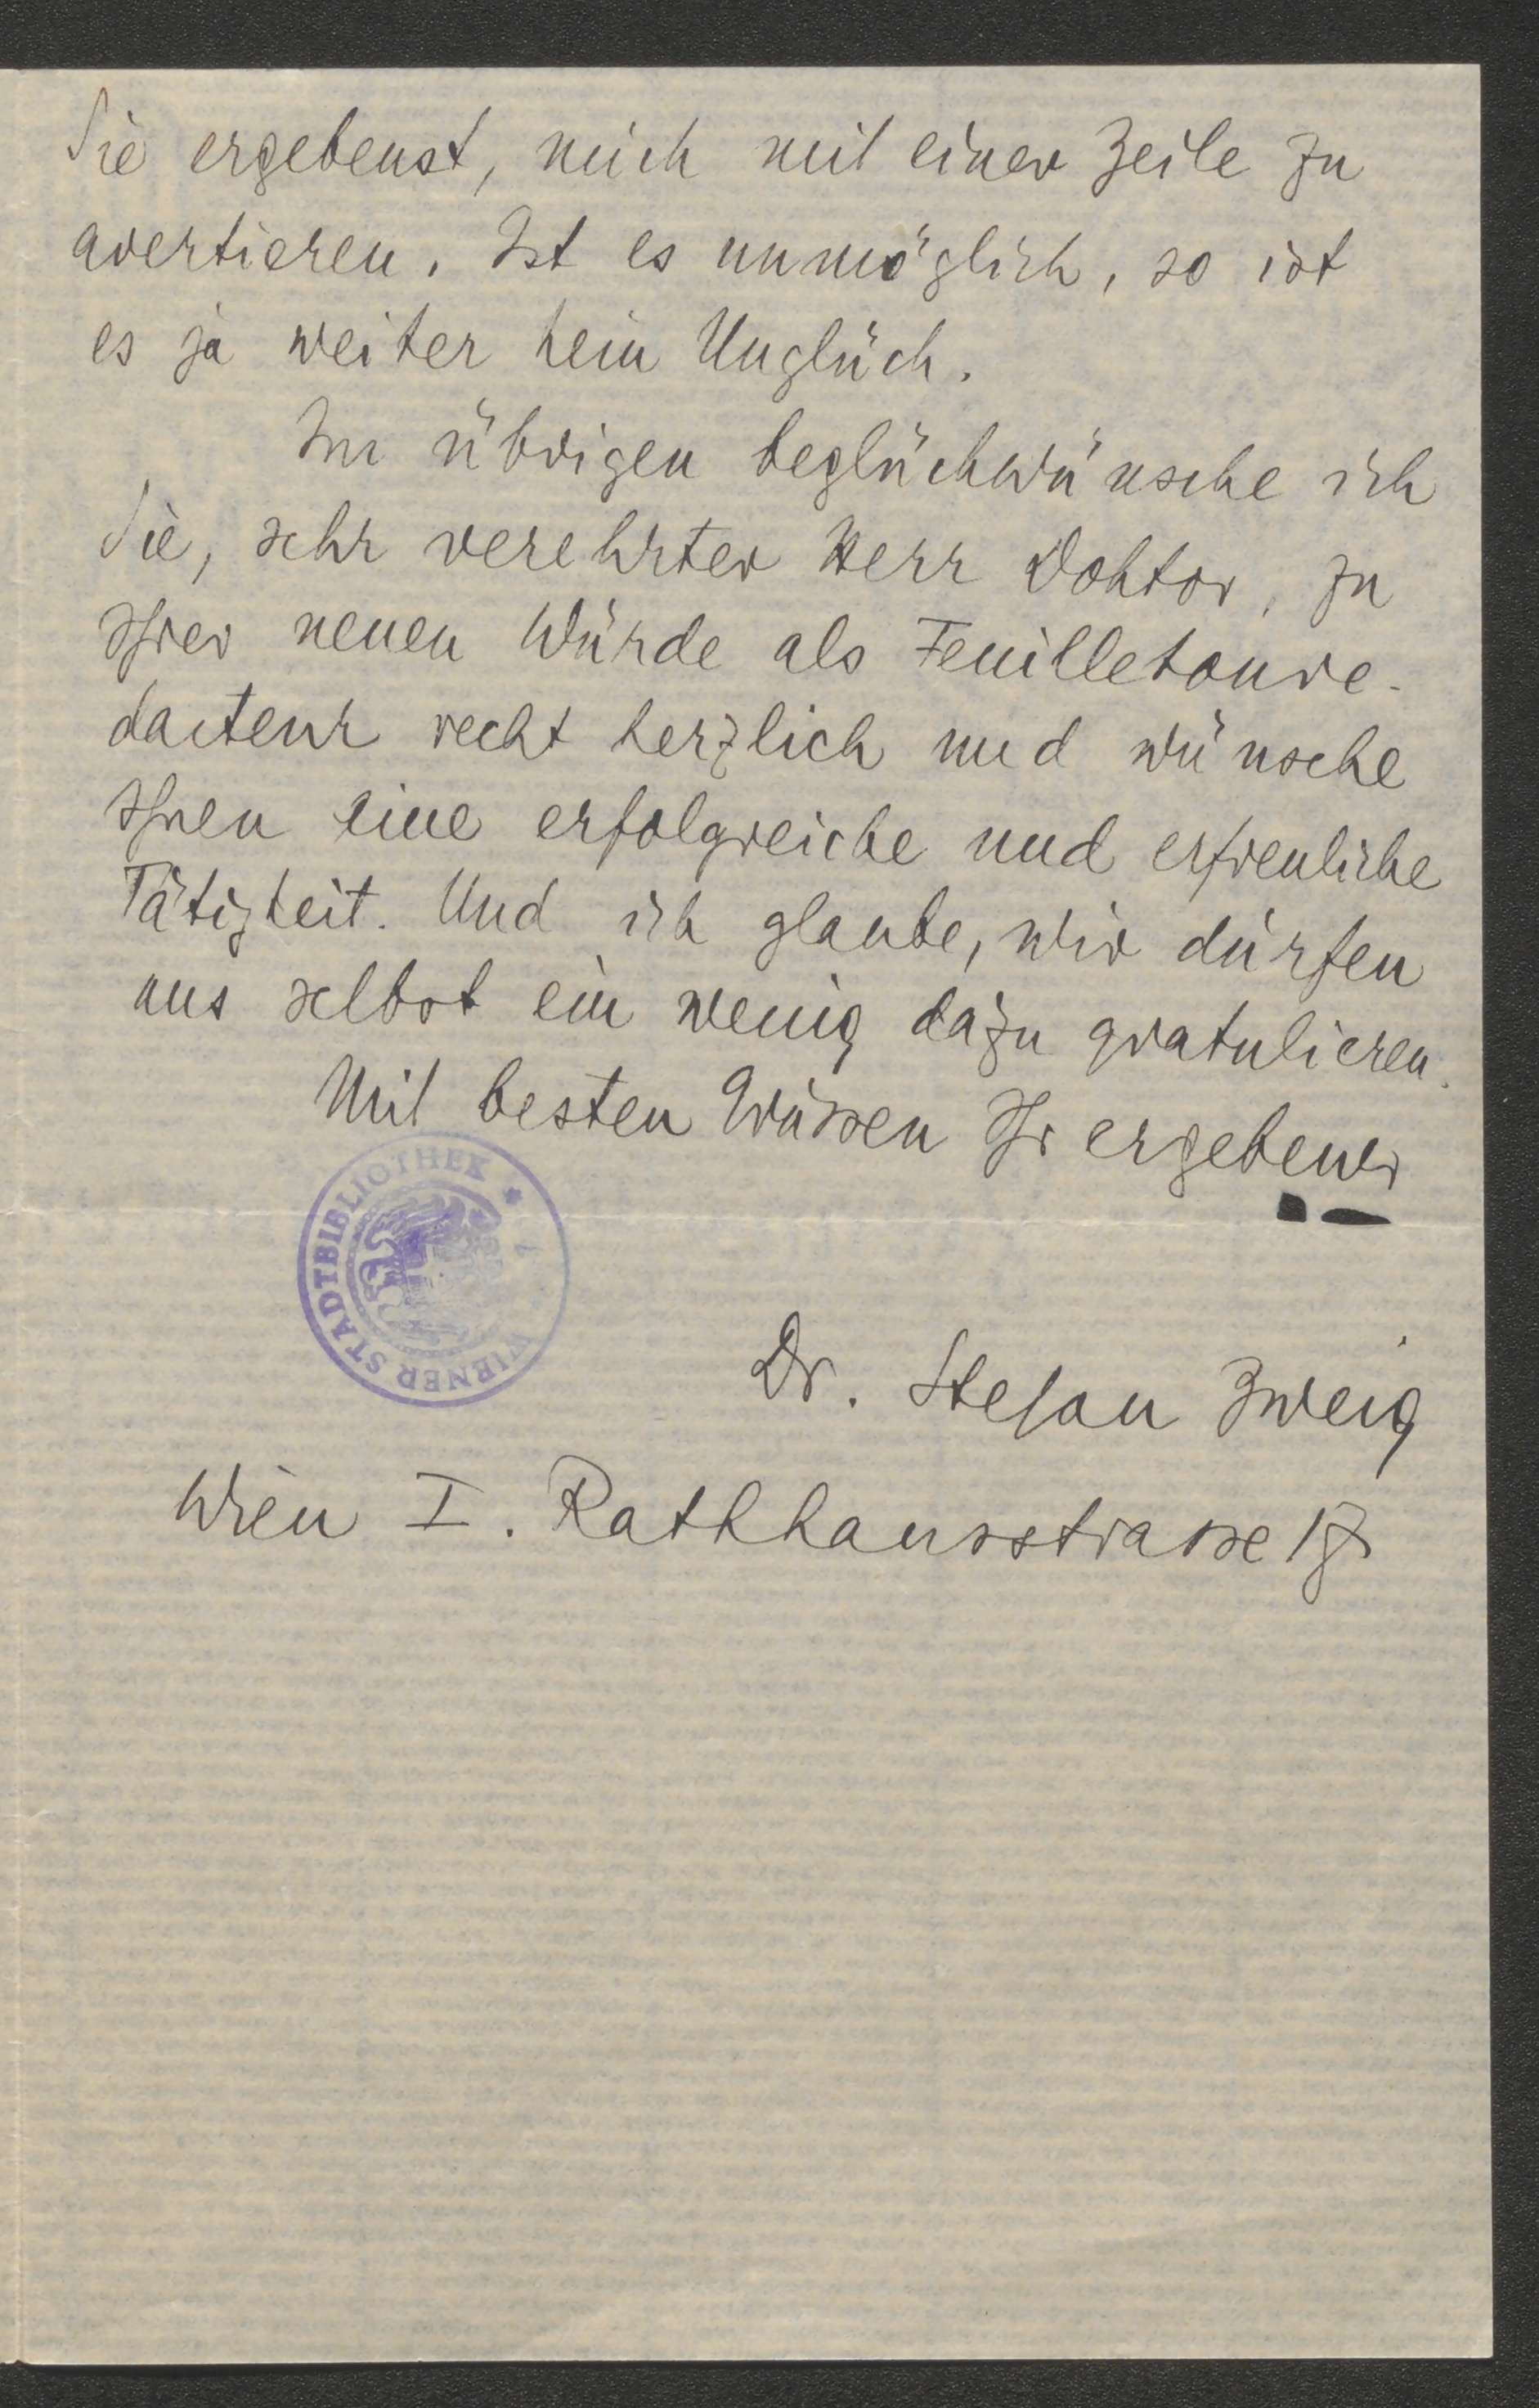 Sie ergebenst, mich mit einer Zeile zu
avertieren. Ist es unmöglich, so ist
es ja weiter kein Unglück.
Im übrigen beglückwünsche ich
Sie, sehr verehrter Herr Doktor, zu
Ihrer neuen Würde als Feuilletonre-
dacteur recht herzlich und wünsche
Ihnen eine erfolgreiche und erfreuliche
Tätigkeit. Und ich glaube, wir dürfen
uns selbst ein wenig dazu gratulieren.
Mit besten Grüssen Ihr ergebener
WIENER STADTBIBLIOTHEK *
Dr. Stefan Zweig
Wien I. Rathhausstrasse 17